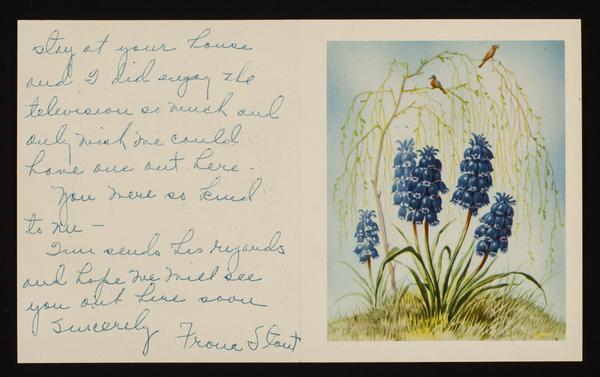 stay at your house
and I did enjoy the
television so much and
only wish we could
have one out here -
You were so kind
to me -
sends his regards
and hope we will see
you out here soon
Sincerely
Stout